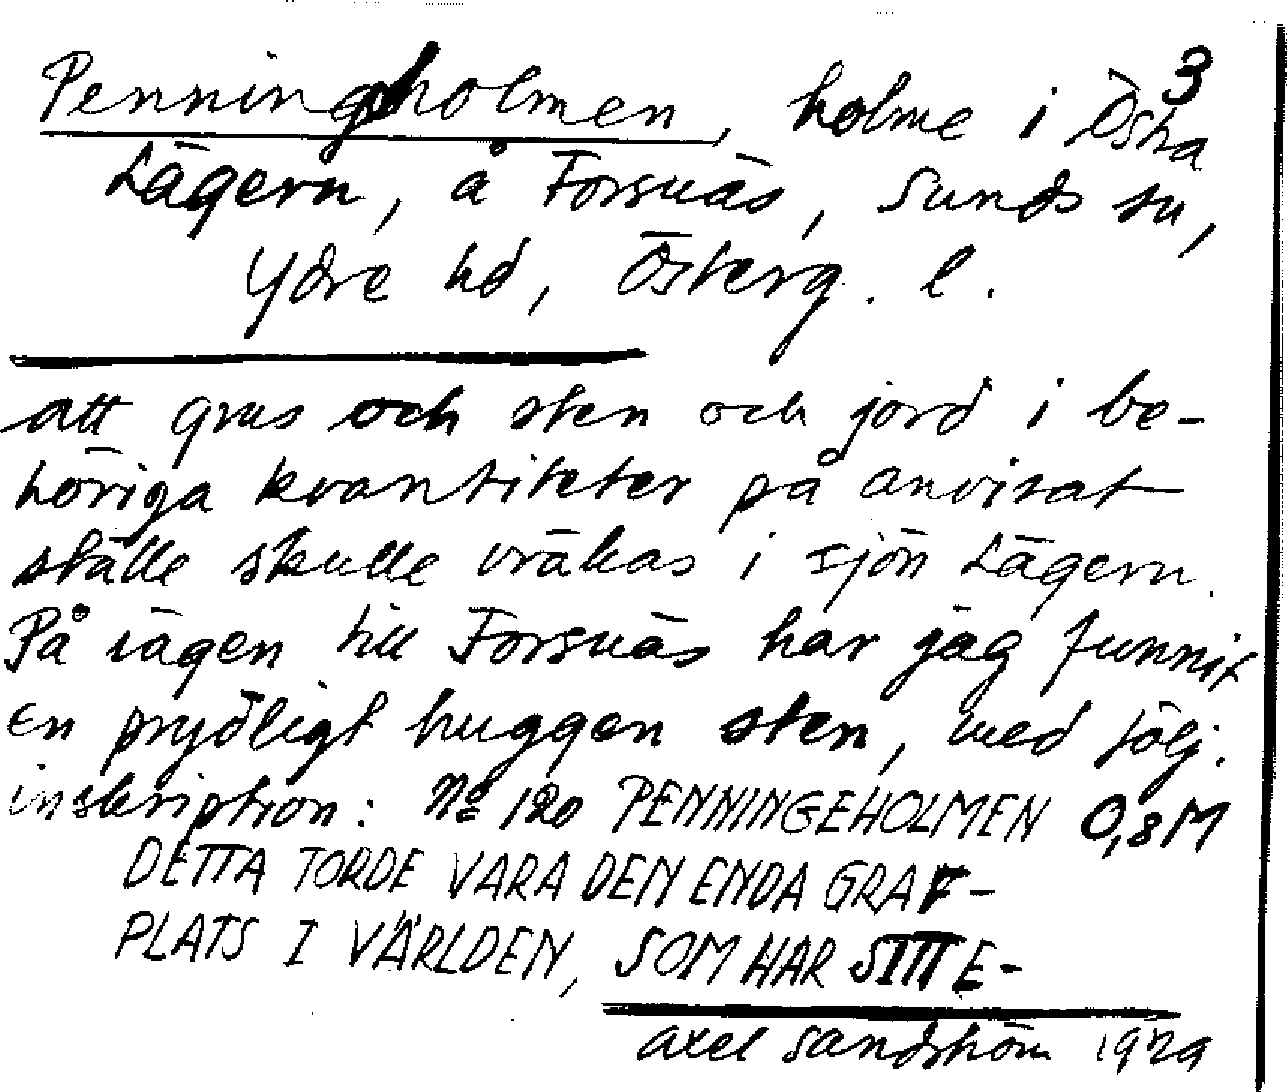 3
Penningholmen, holme i Östra
Lägern, å Forsnäs, Sunds sn,
Ydre hd, Österg. l.
att grus och sten och jord i be-
höriga kvantiteter på anvisat
ställe skulle vräkas i sjön Lägern.
På vägen till Forsnäs har jag funnit
En prydligt huggen sten, med följ.
inskription: No 120 PENNINGEHOLMEN 0,8M
DETTA TORDE VARA DEN ENDA GRAF-
PLATS I VÄRLDEN, SOM HAR SITT E-
Axel Sandström 1929